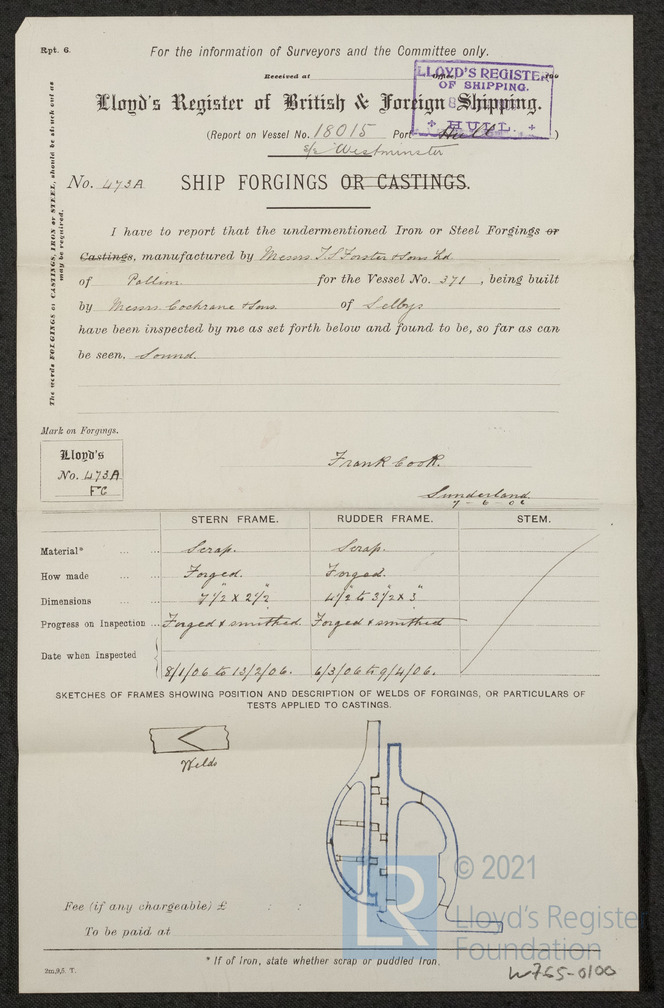 Rpt. 6.
For the information of Surveyors and the Committee only.
Received at Office,
LLOYD'S REGISTER
OF SHIPPING.
HULL.
Lloyd's Register of British & Foreign Shipping.
(Report on Vessel No. 18015 Port Hull )
s/s Westminster
No. 473A SHIP FORGINGS OR CASTINGS.
The words FORGINGS or CASTINGS, IRON or STEEL, should be struck out as may be required.
I have to report that the undermentioned Iron or Steel Forgings or
Castings, manufactured by Messrs. T.S. Forster & Sons Ld
of Pallion for the Vessel No. 371 , being built
by Messrs. Cochrane & Sons of Selby
have been inspected by me as set forth below and found to be, so far as can
be seen, Sound.
Mark on Forgings.
Lloyd's
No. 473A
FC
Frank Cook.
Sunderland
7-6-06
STERN FRAME. RUDDER FRAME. STEM.
Material* ... ... Scrap. Scrap.
How made ... ... Forged. Forged.
Dimensions ... ... 7 1/2" x 2 1/2" 4 1/2" to 3 1/2 x 3"
Progress on Inspection ... Forged & smithed. Forged & smithed
Date when Inspected 8/1/06 to 13/2/06. 6/3/06 to 9/4/06.
SKETCHES OF FRAMES SHOWING POSITION AND DESCRIPTION OF WELDS OF FORGINGS, OR PARTICULARS OF
TESTS APPLIED TO CASTINGS.
Welds
Fee (if any chargeable) £ : :
To be paid at
* If of Iron, state whether scrap or puddled Iron.
2m,9,5. T.
LR
© 2021
Lloyd's Register
Foundation
W755-0100